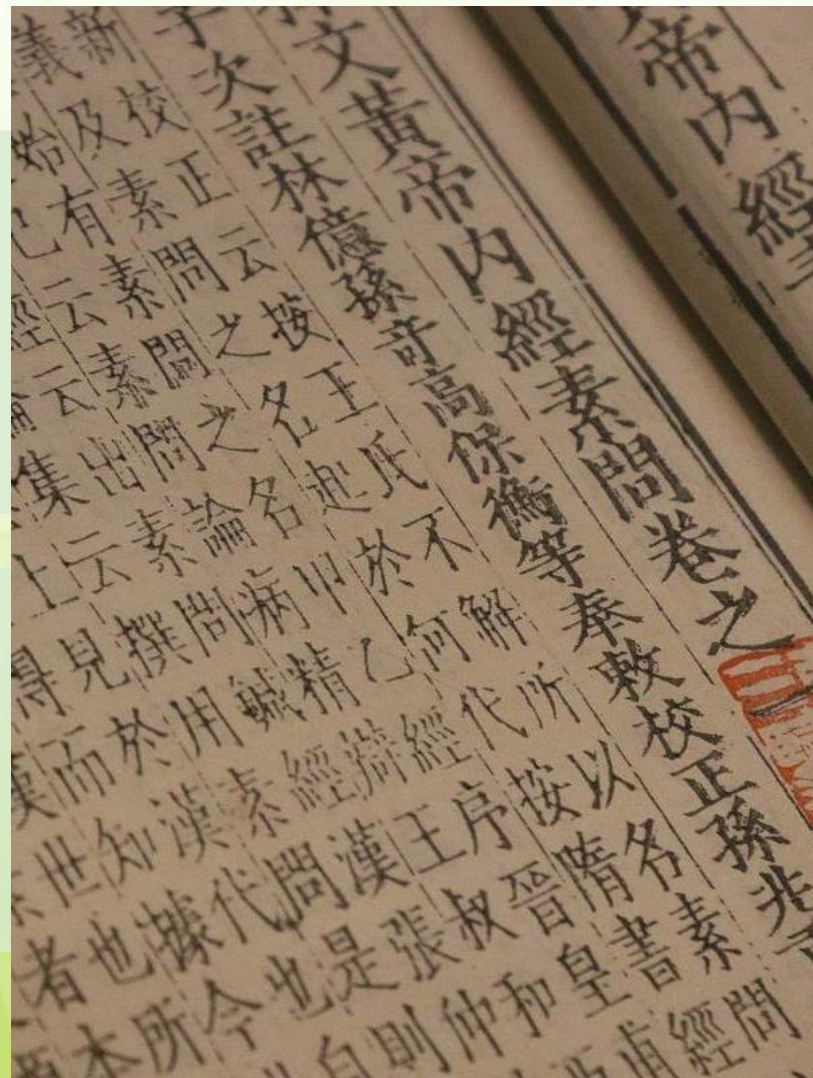 帝内經
文黃帝内經素問卷之
子次註林億孫奇高保衡等奉敕校正孫兆
新校正云按王氏不解所以名素問
義及素問之名起於何代按隋書經
始有素問之名甲乙經序晉皇
已云素問論病精辯王叔和
經云出素問鍼經漢張仲
論集云撰用素問是則
上見於漢代也自
得而知據今
漢世也所
者本